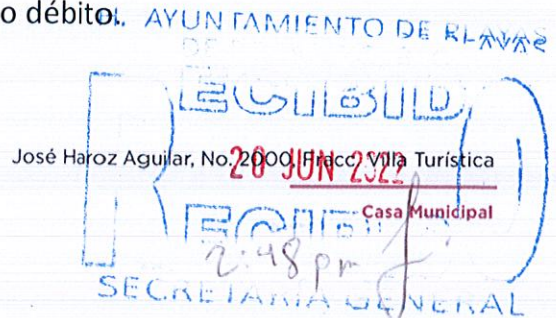 o débito.
H. AYUNTAMIENTO DE PLAYAS
RECIBIDO
José Haroz Aguilar, No. 2000, Fracc. Villa Turística
20 JUN 2022
Casa Municipal
RECIBIDO
2:48 pm
SECRETARIA GENERAL